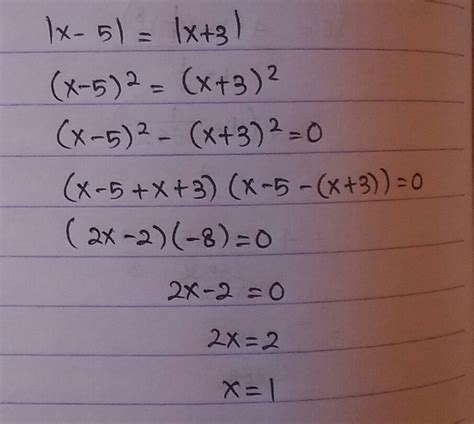 |x-5| = |x+3|
(x-5)² = (x+3)²
(x-5)² - (x+3)² = 0
(x-5+x+3)(x-5-(x+3))=0
(2x-2)(-8)=0
2x-2=0
2x=2
x=1